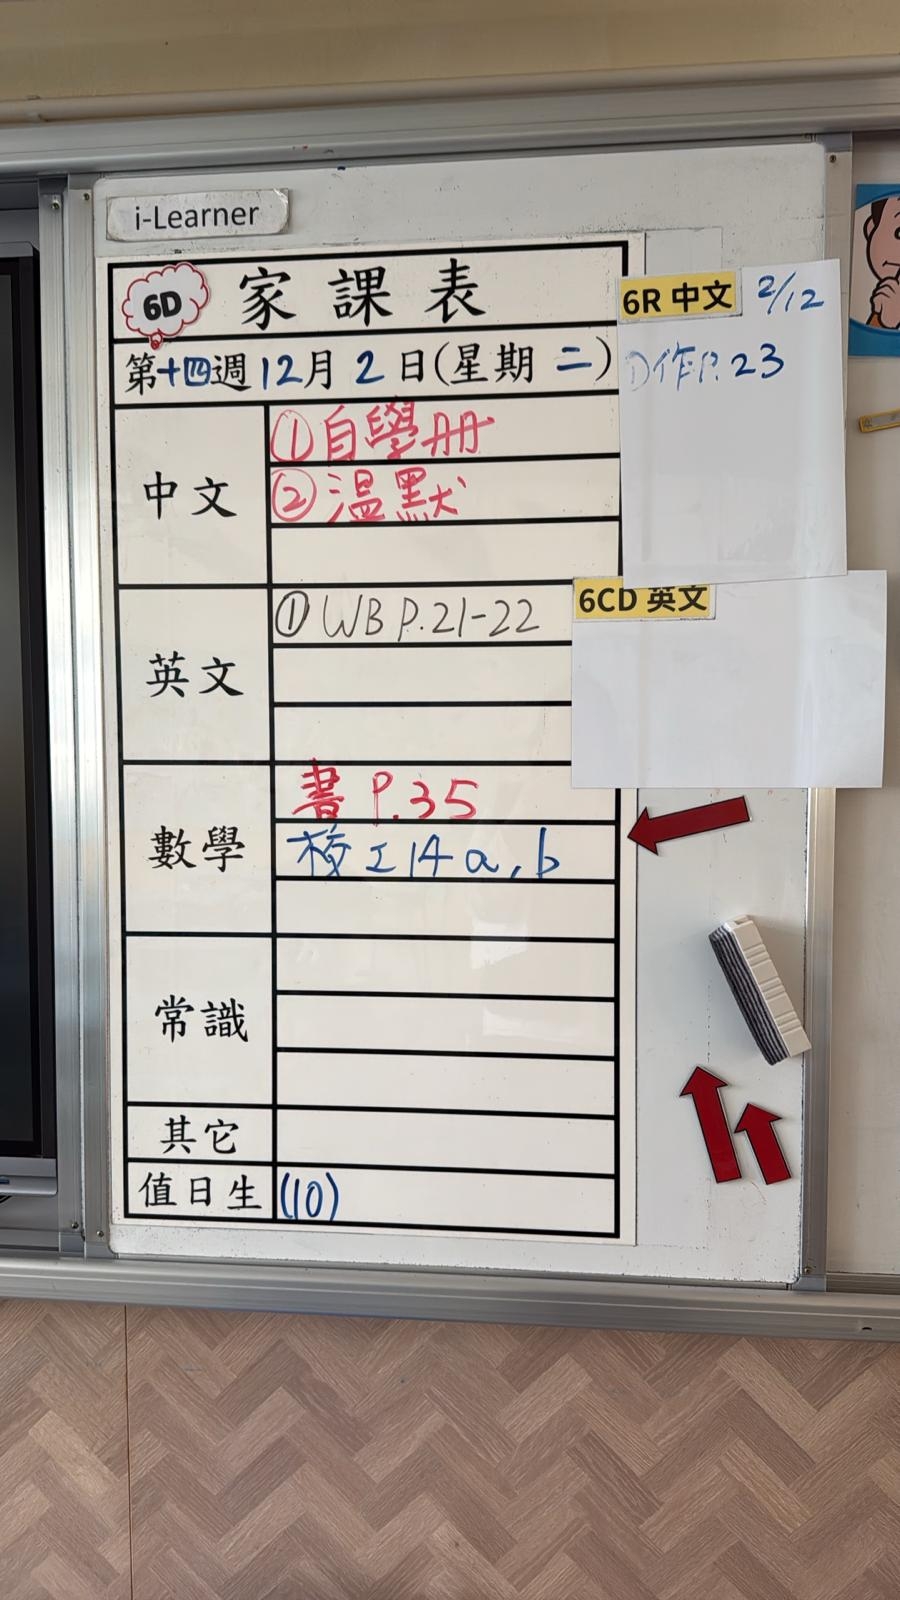 i-Learner
6D 家課表
第十四週12月2日(星期二)
中文
①自學册
②溫默
英文
①WB P.21-22
數學
書 P.35
校工14a,b
常識
其它
值日生
(10)
6R 中文 2/12
①作P.23
6CD 英文